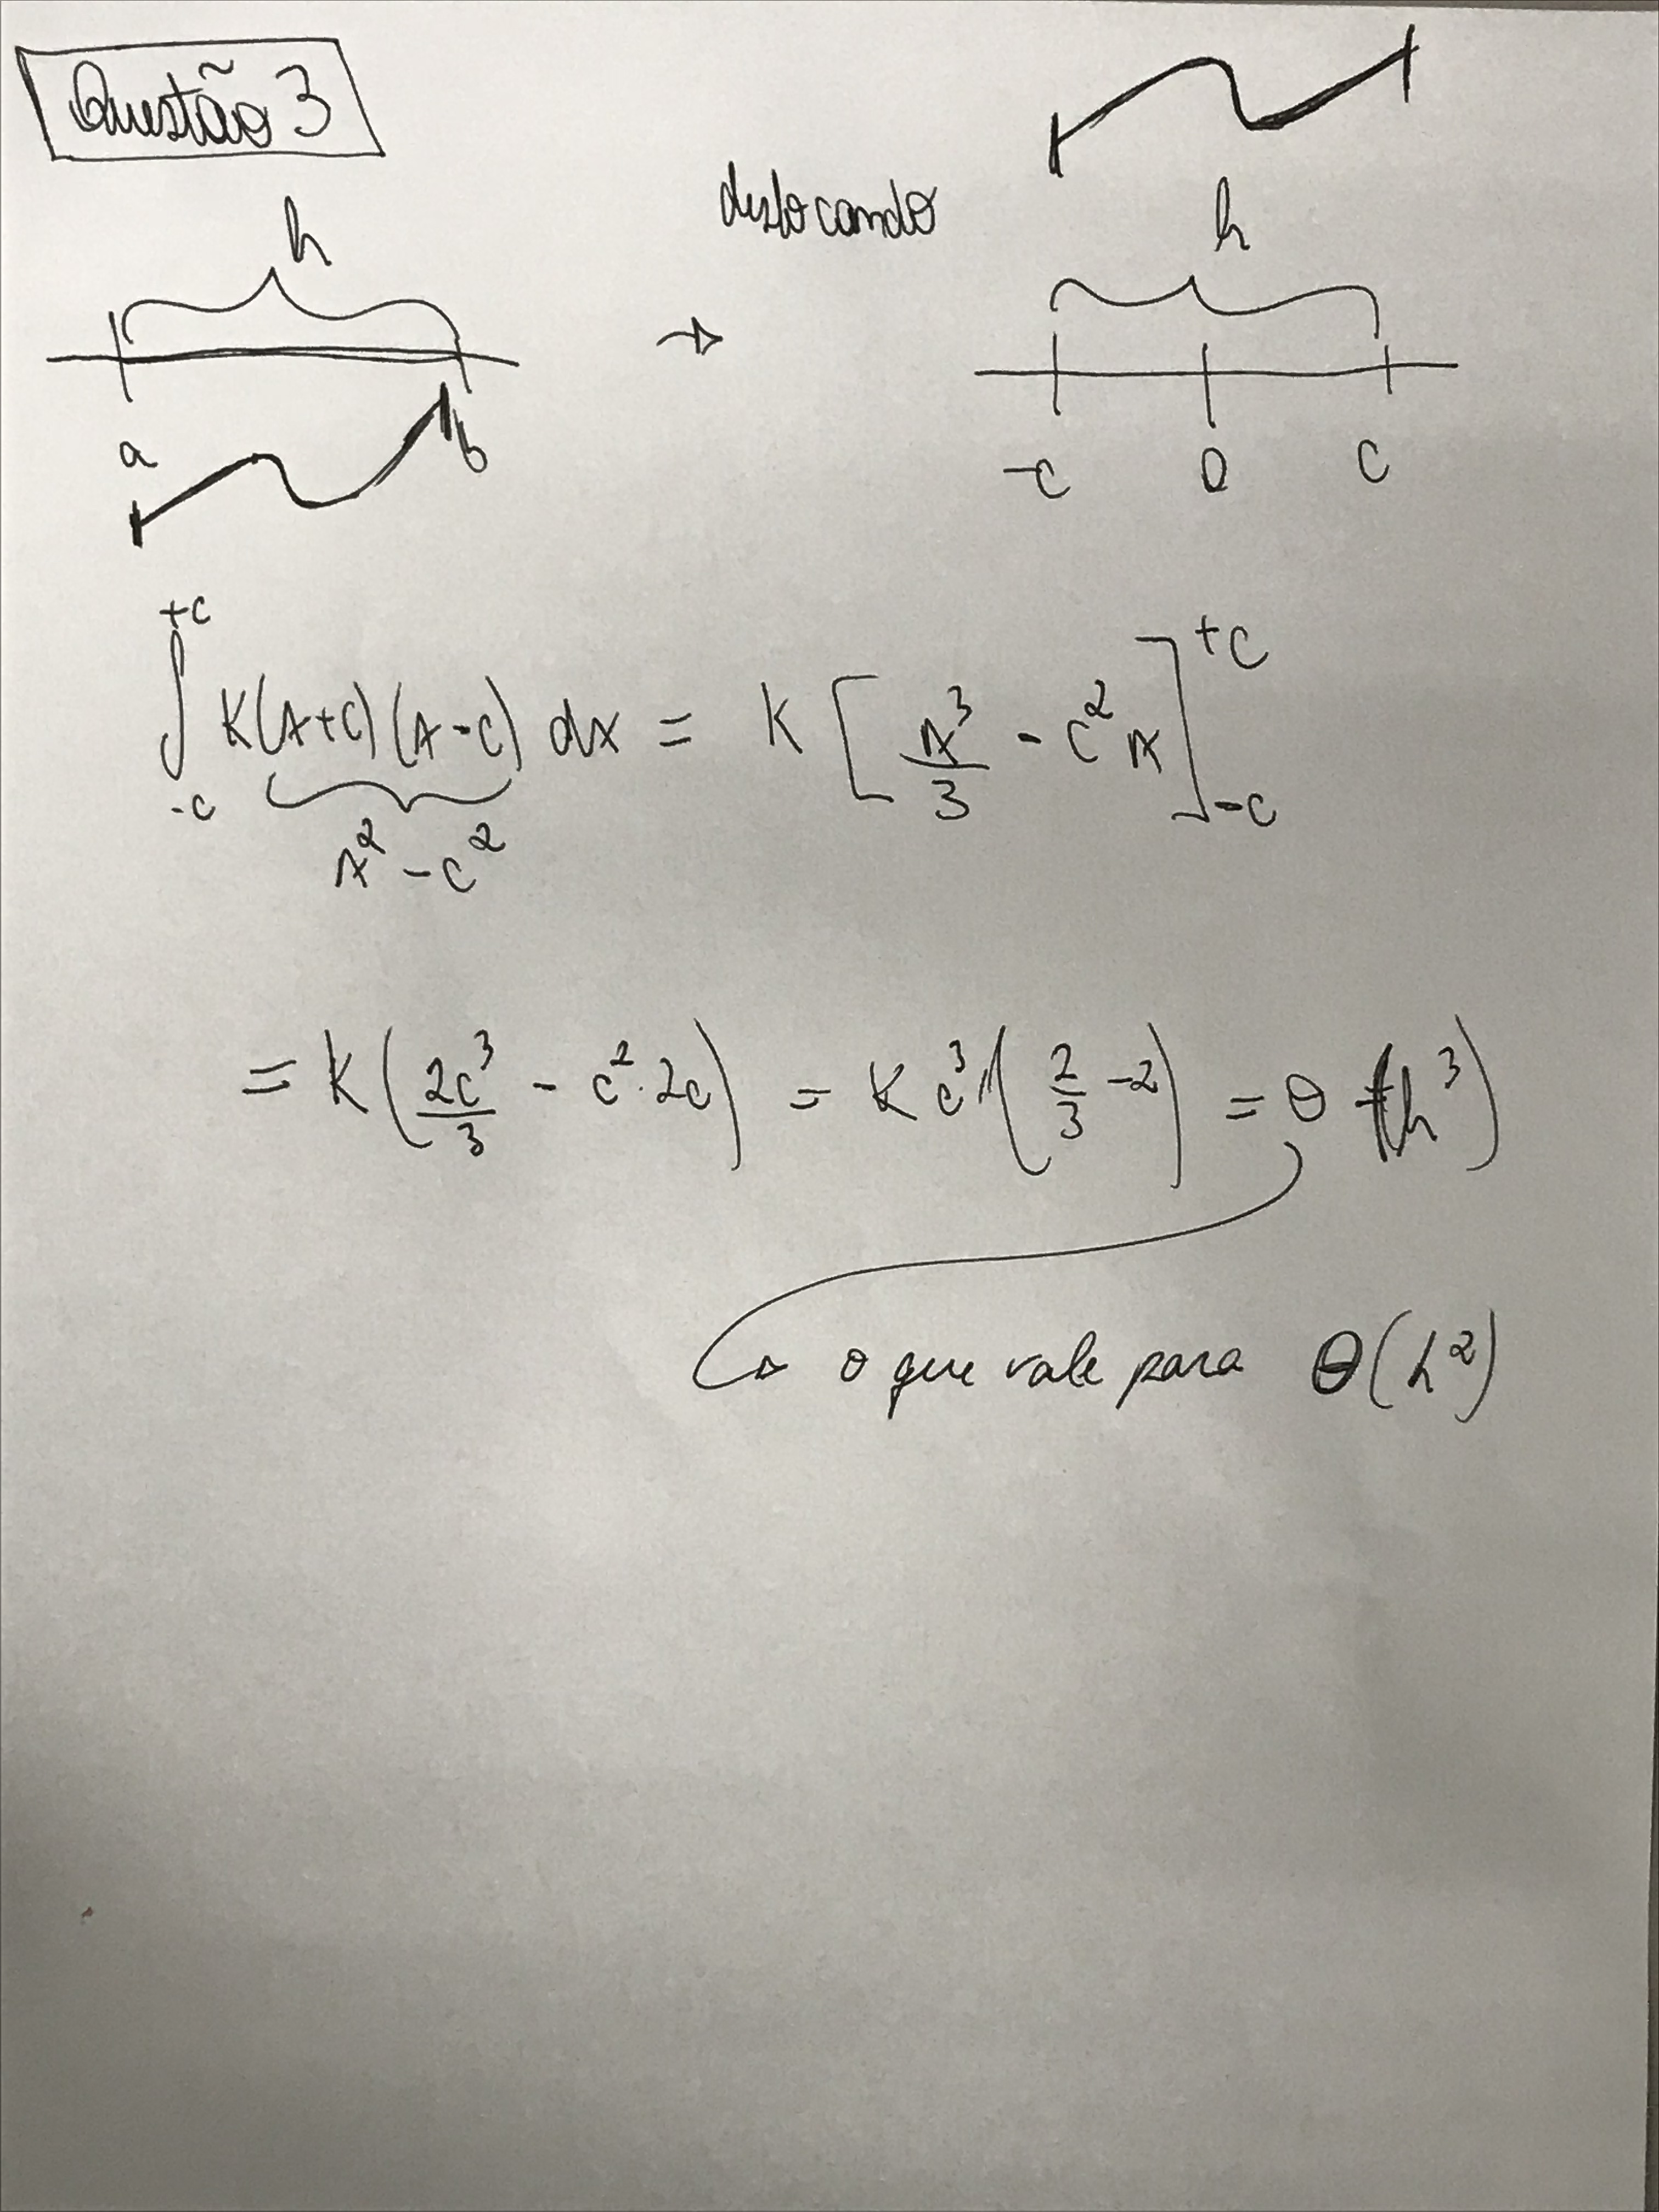 Questão 3
h
deslocando
h
→
a b
-c 0 c
∫_{-c}^{+c} K(x+c)(x-c) dx = K [ x³/3 - c² x ]_{-c}^{+c}
x² - c²
= K ( 2c³/3 - c² · 2c ) = K c³ ( 2/3 - 2 ) = θ (h³)
→ o que vale para θ(h²)